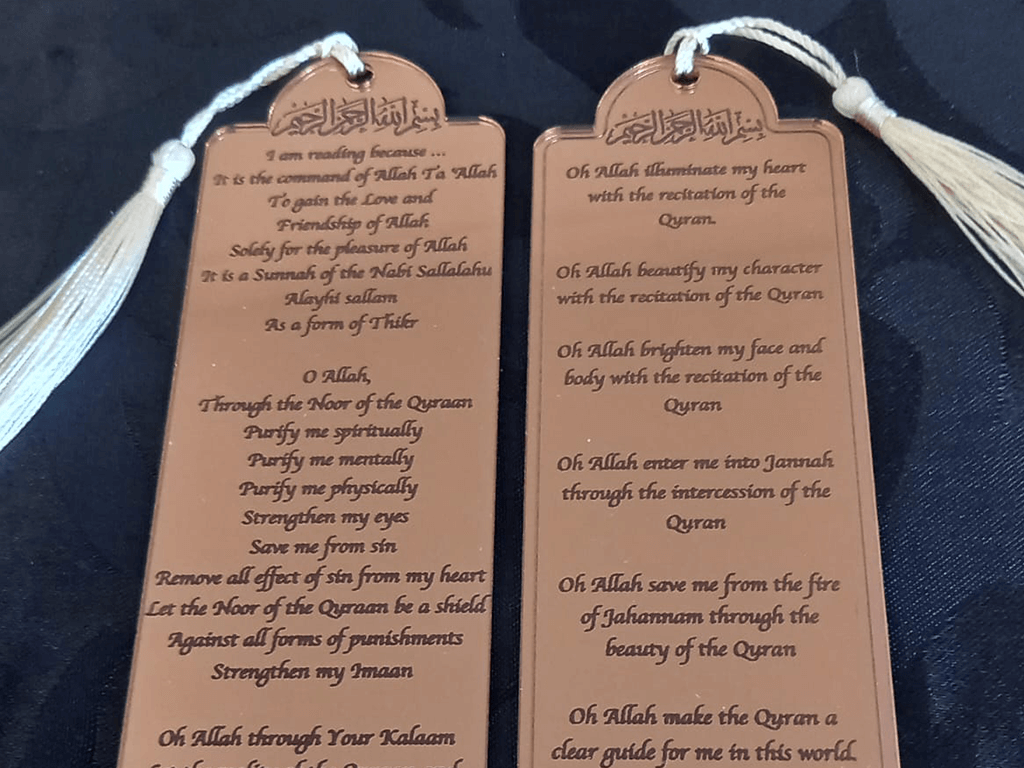 بسم الله الرحمن الرحيم
I am reading because ...
It is the command of Allah Ta 'Allah
To gain the Love and
Friendship of Allah
Solely for the pleasure of Allah
It is a Sunnah of the Nabi Sallalahu
Alayhi sallam
As a form of Thikr
O Allah,
Through the Noor of the Quraan
Purify me spiritually
Purify me mentally
Purify me physically
Strengthen my eyes
Save me from sin
Remove all effect of sin from my heart
Let the Noor of the Quraan be a shield
Against all forms of punishments
Strengthen my Imaan
Oh Allah through Your Kalaam
بسم الله الرحمن الرحيم
Oh Allah illuminate my heart
with the recitation of the
Quran.
Oh Allah beautify my character
with the recitation of the Quran
Oh Allah brighten my face and
body with the recitation of the
Quran
Oh Allah enter me into Jannah
through the intercession of the
Quran
Oh Allah save me from the fire
of Jahannam through the
beauty of the Quran
Oh Allah make the Quran a
clear guide for me in this world.